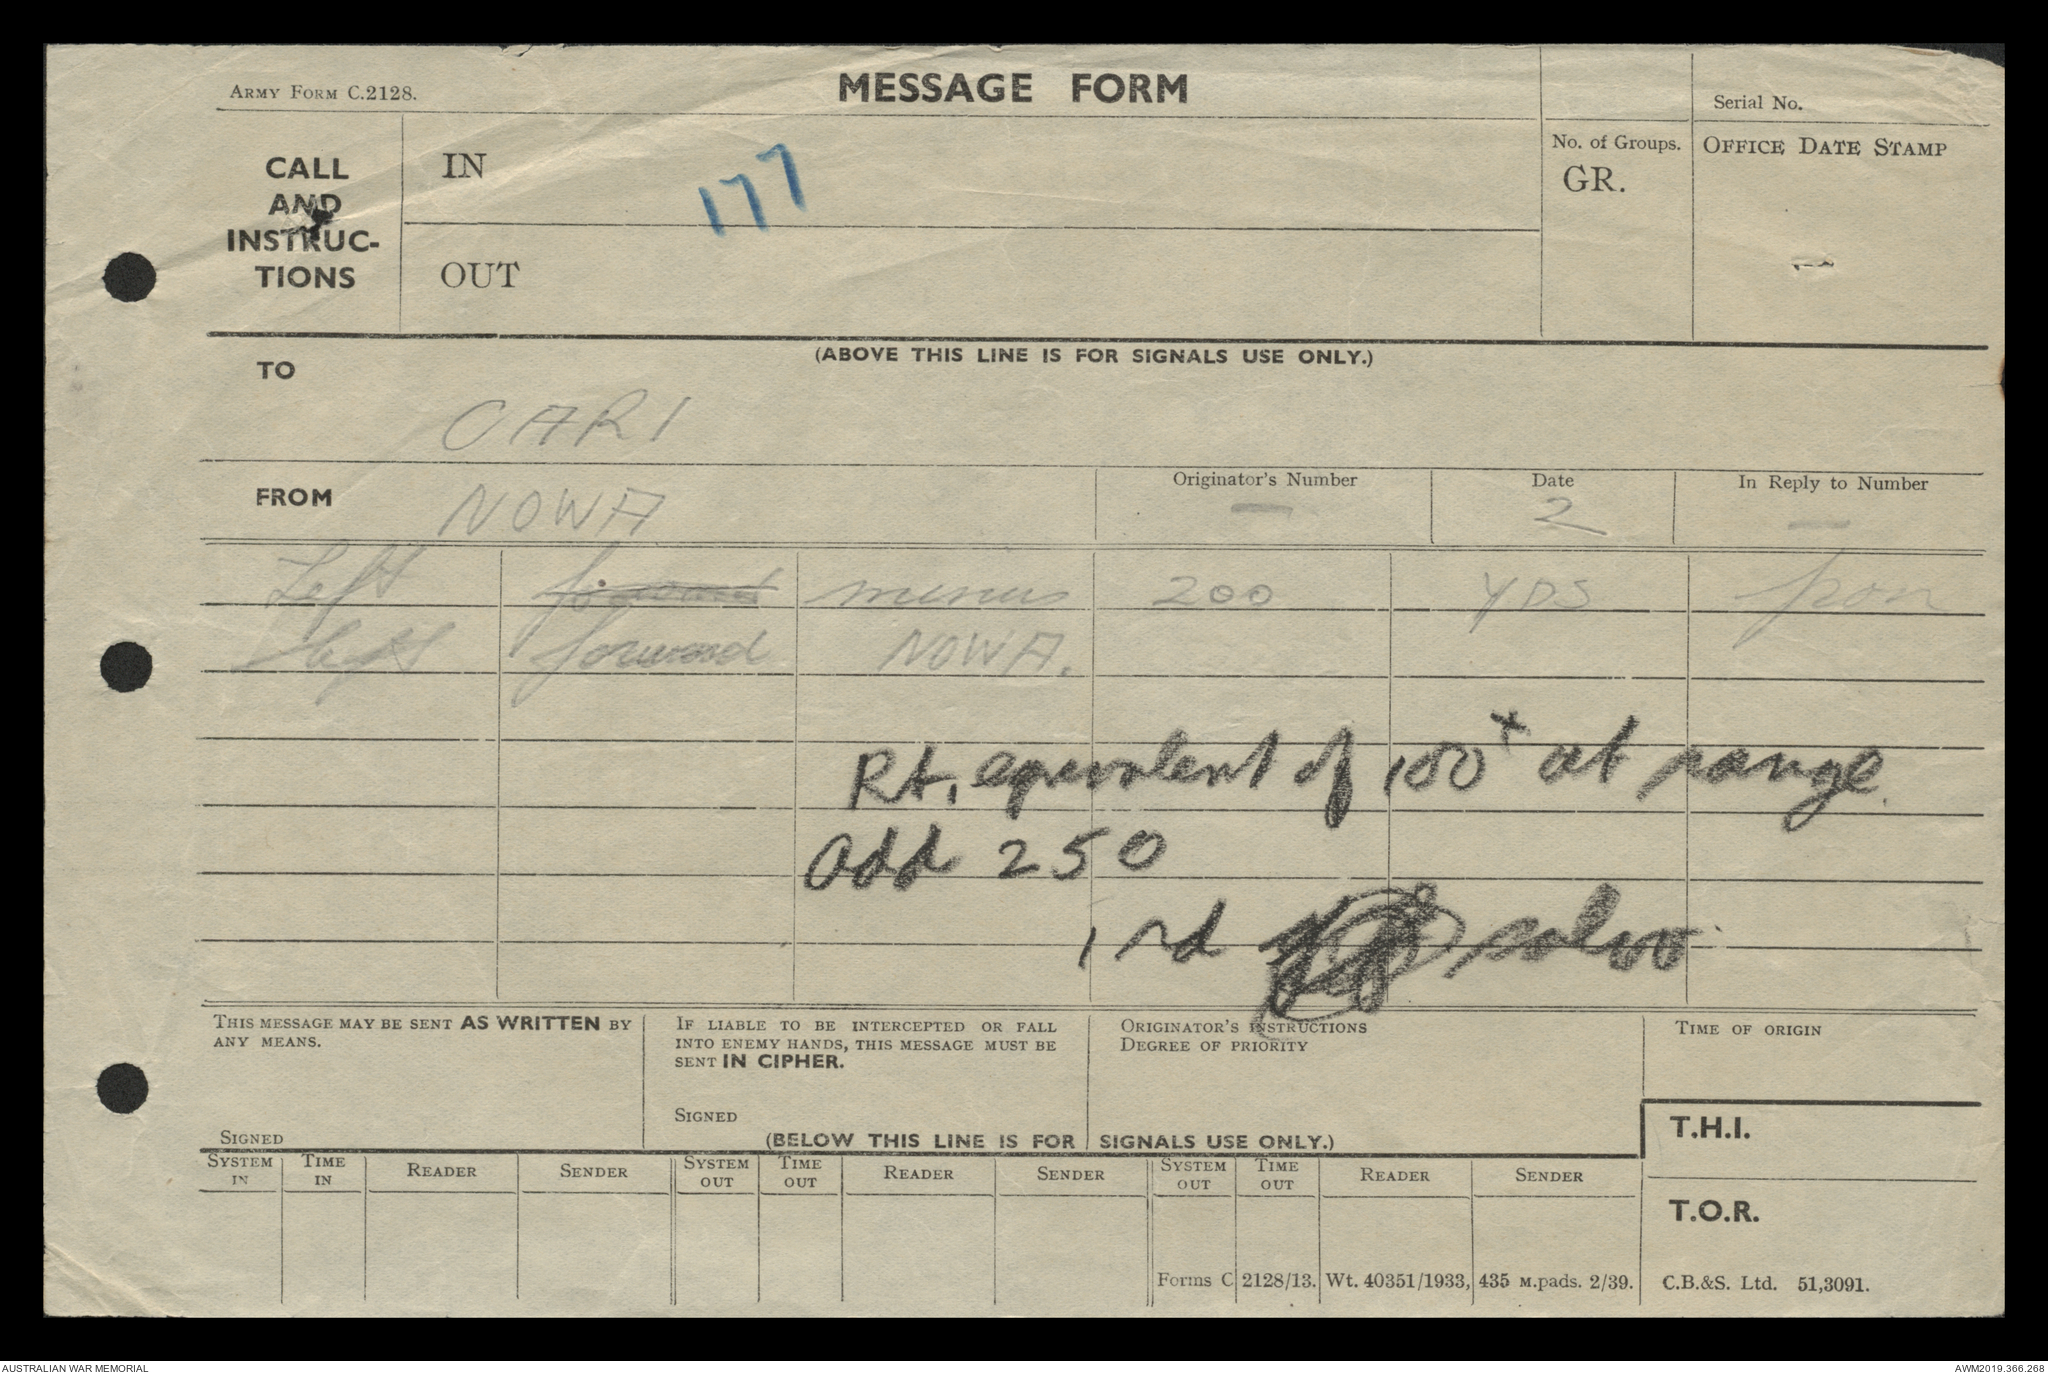 ARMY FORM C.2128.
MESSAGE FORM
Serial No.
CALL
AND
INSTRUC-
TIONS
IN
177
OUT
No. of Groups.
GR.
OFFICE DATE STAMP
(ABOVE THIS LINE IS FOR SIGNALS USE ONLY.)
TO
CARI
FROM
NOWA
Originator's Number
—
Date
2
In Reply to Number
—
Left minus 200 YDS from
left forward NOWA.
Rt. equivalent of 100x at range
add 250
1 rd salvo
THIS MESSAGE MAY BE SENT AS WRITTEN BY
ANY MEANS.
SIGNED
IF LIABLE TO BE INTERCEPTED OR FALL
INTO ENEMY HANDS, THIS MESSAGE MUST BE
SENT IN CIPHER.
SIGNED
ORIGINATOR'S INSTRUCTIONS
DEGREE OF PRIORITY
TIME OF ORIGIN
T.H.I.
(BELOW THIS LINE IS FOR SIGNALS USE ONLY.)
SYSTEM IN TIME IN READER SENDER SYSTEM OUT TIME OUT READER SENDER SYSTEM OUT TIME OUT READER SENDER
T.O.R.
Forms C 2128/13. Wt. 40351/1933, 435 M.pads. 2/39. C.B.&S. Ltd. 51,3091.
AUSTRALIAN WAR MEMORIAL
AWM2019.366.268